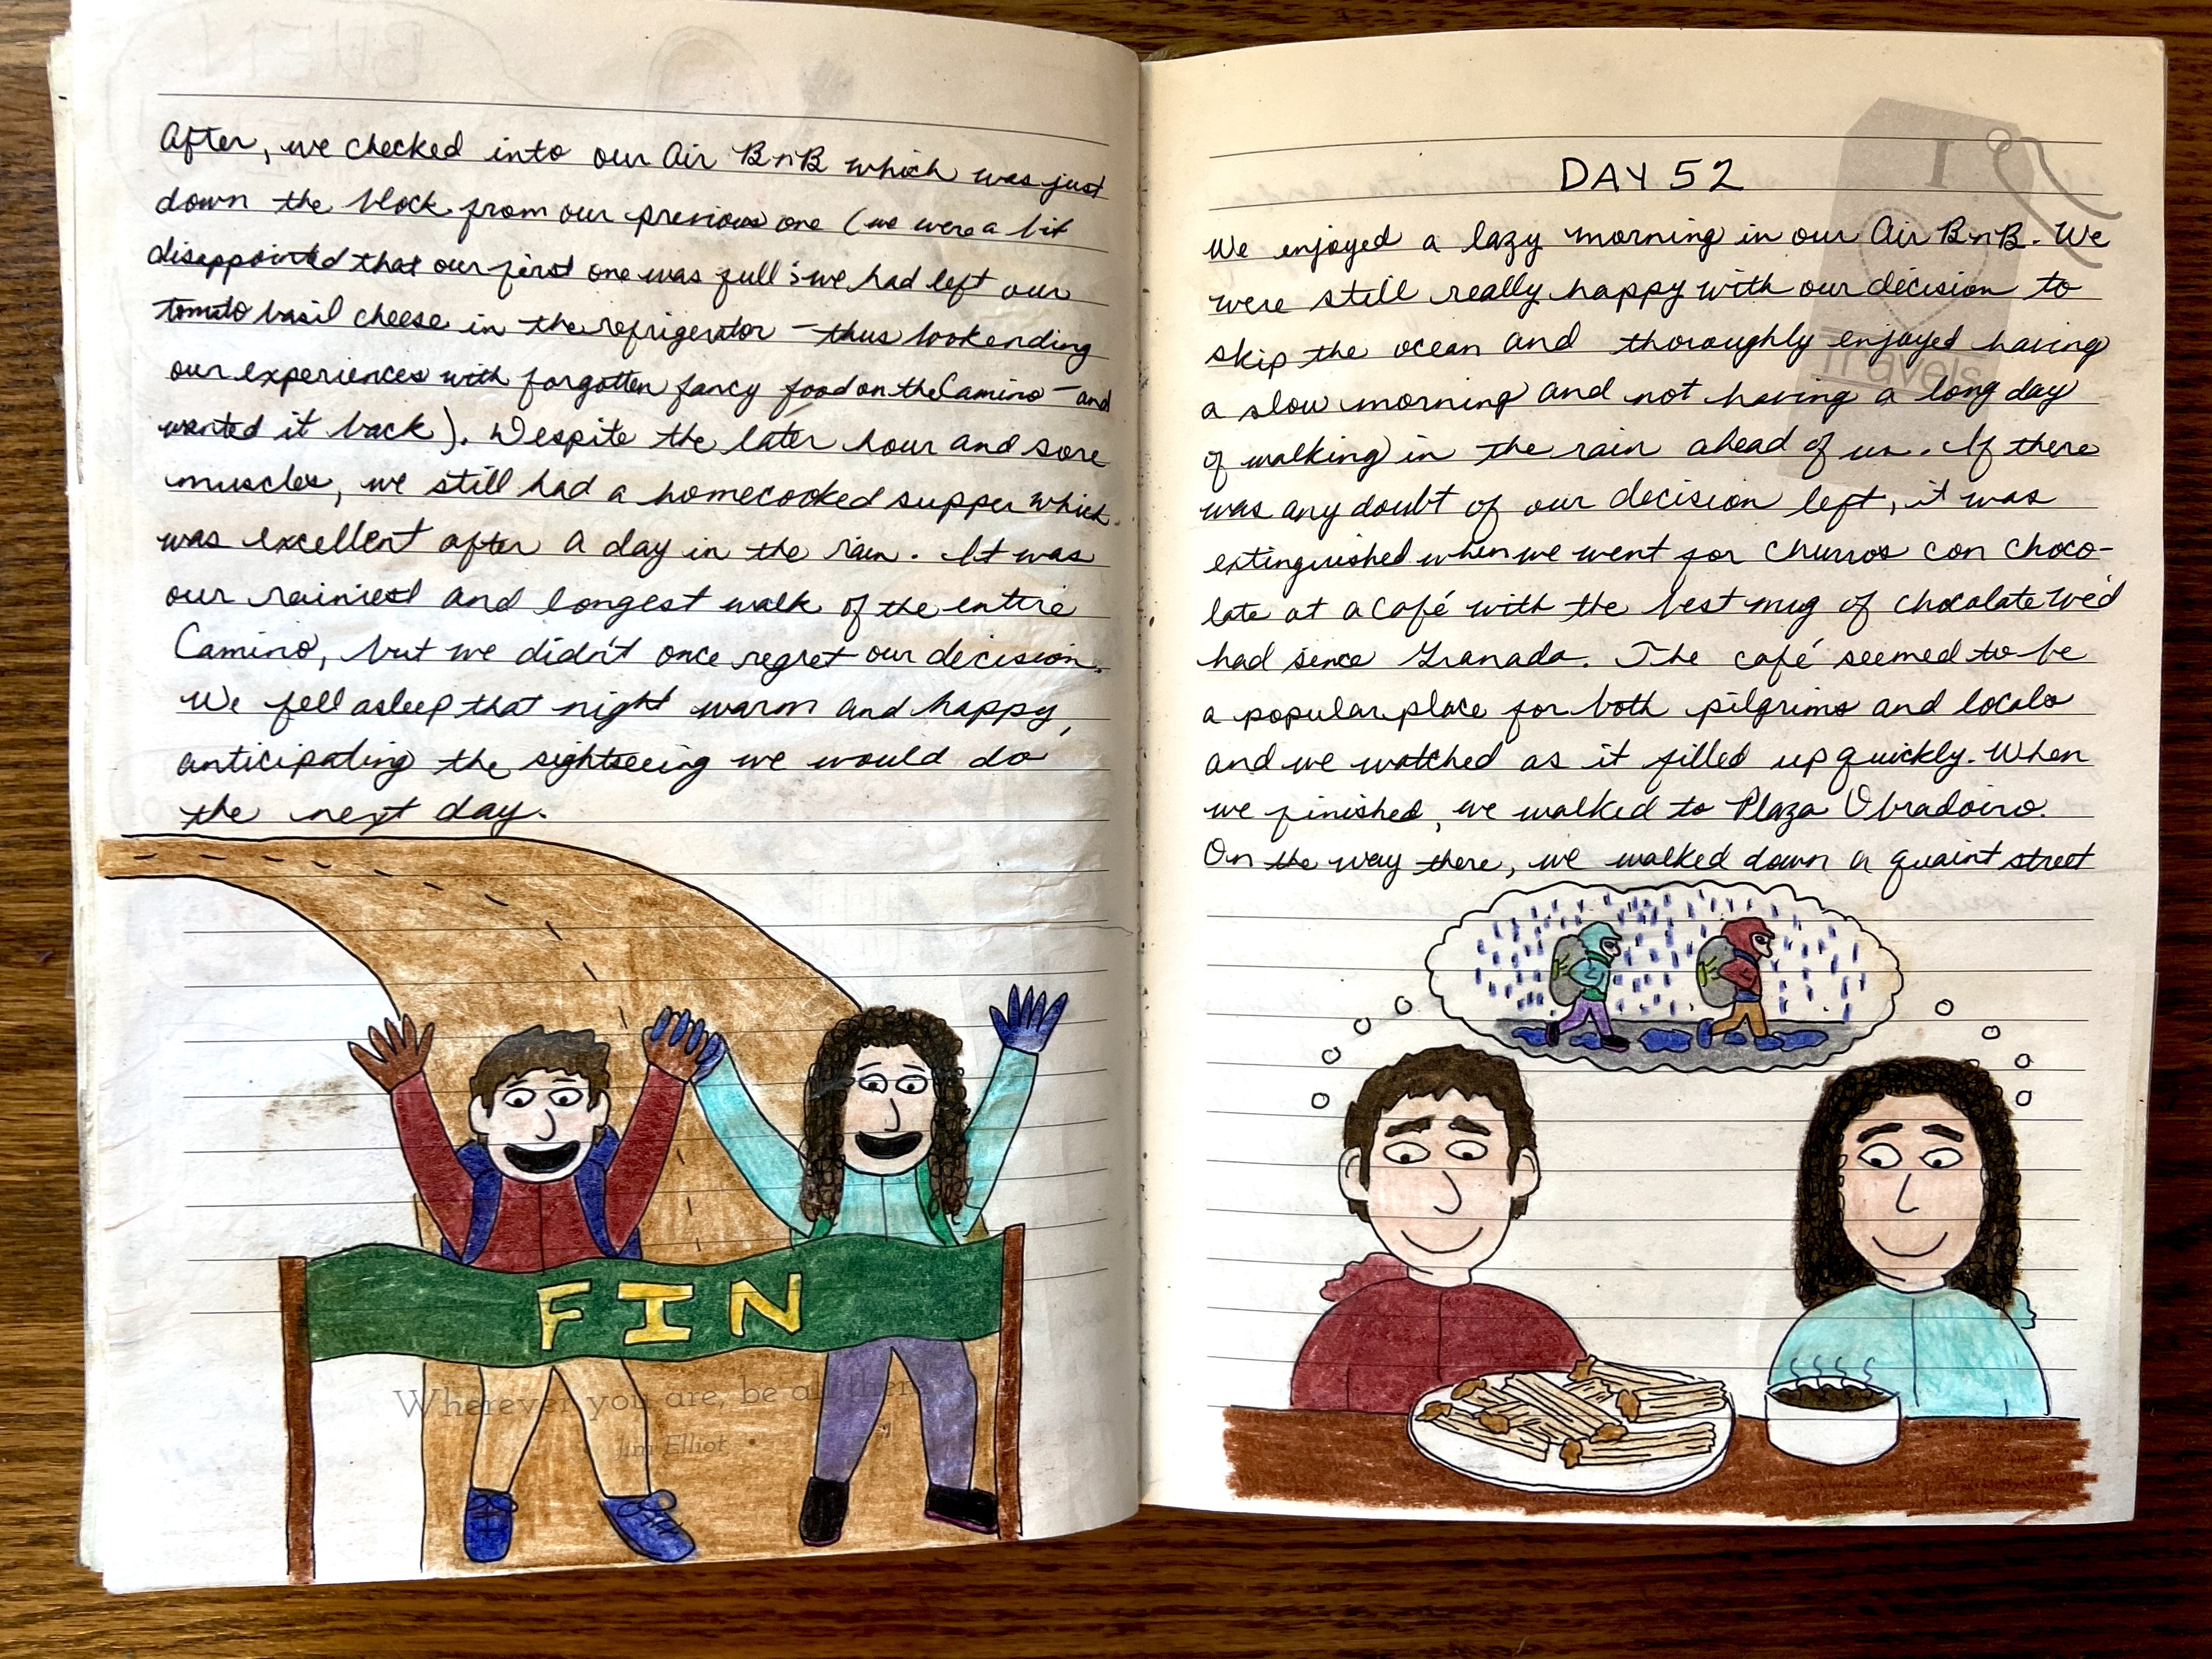 After, we checked into our Air BnB which was just
down the block from our previous one (we were a bit
disappointed that our first one was full & we had left our
tomato basil cheese in the refrigerator – thus bookending
our experiences with forgotten fancy food on the Camino – and
wanted it back). Despite the later hour and sore
muscles, we still had a homecooked supper which
was excellent after a day in the rain. It was
our rainiest and longest walk of the entire
Camino, but we didn't once regret our decision.
We fell asleep that night warm and happy,
anticipating the sightseeing we would do
the next day.
FIN
Wherever you are, be all there
Jim Elliot
DAY 52
We enjoyed a lazy morning in our Air BnB. We
were still really happy with our decision to
skip the ocean and thoroughly enjoyed having
a slow morning and not having a long day
of walking in the rain ahead of us. If there
was any doubt of our decision left, it was
extinguished when we went for churros con choco-
late at a café with the best mug of chocolate we'd
had since Granada. The café seemed to be
a popular place for both pilgrims and locals
and we watched as it filled up quickly. When
we finished, we walked to Plaza Obradoiro.
On the way there, we walked down a quaint street
I
Travels